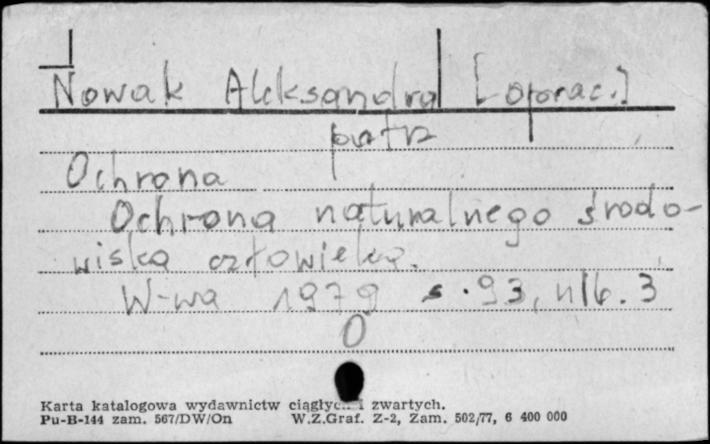 Nowak Aleksandra [oprac.]
patrz
Ochrona
Ochrona naturalnego środo-
wiska człowieka.
W-wa 1979 s. 93, nlb. 3
O
Karta katalogowa wydawnictw ciągłyc i zwartych.
Pu-B-144 zam. 567/DW/On W.Z.Graf. Z-2, Zam. 502/77, 6 400 000